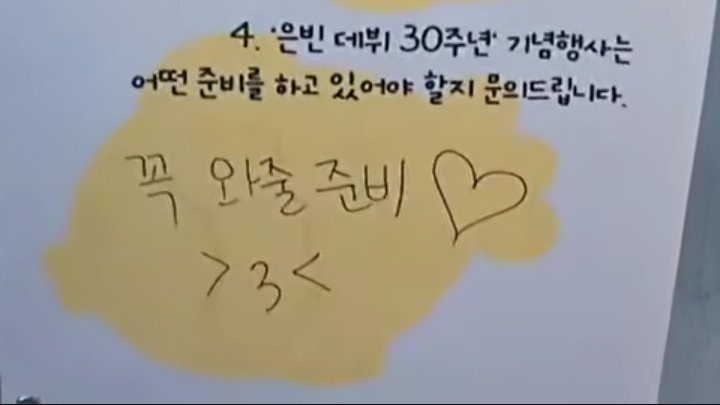 4. '은빈 데뷔 30주년' 기념행사는
어떤 준비를 하고 있어야 할지 문의드립니다.
꼭 와줄 준비 ♡
>3<